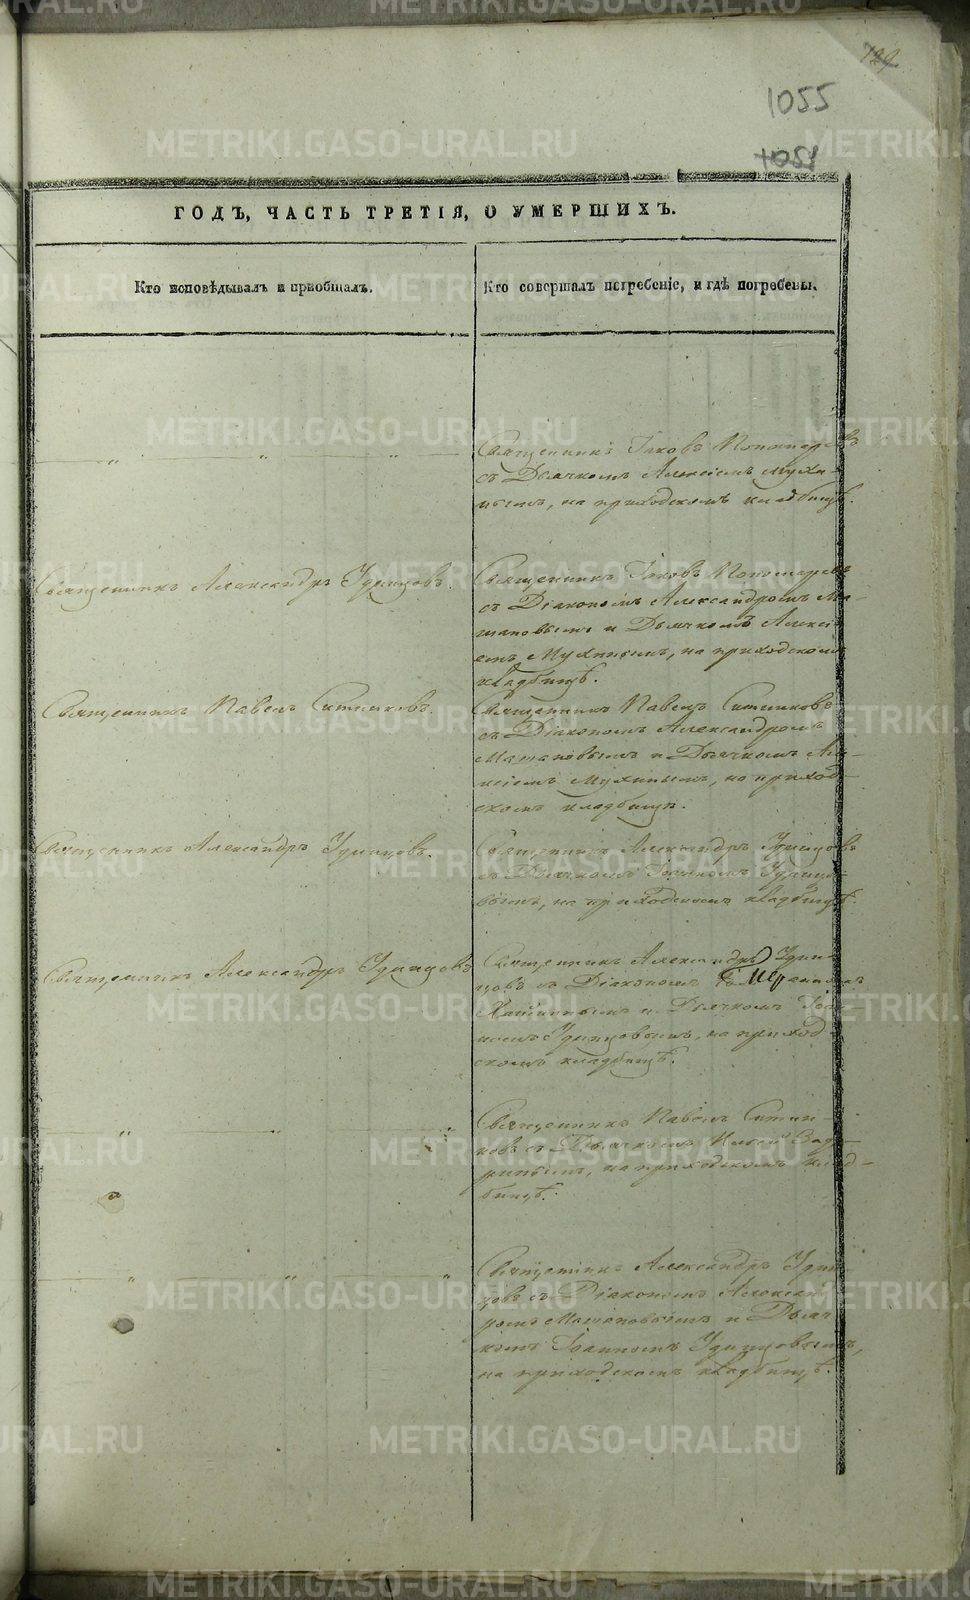 129
1055
1051
ГОДЪ, ЧАСТЬ ТРЕТІЯ, О УМЕРШИХЪ.
Кто исповѣдывалъ и пріобщалъ.
Кто совершалъ погребеніе, и гдѣ погребены.
Священникъ Іаковъ Пономаревъ
съ Дьячкомъ Алексіемъ Мухи-
нымъ, на приходскомъ кладбищѣ.
Священникъ Александръ Удинцовъ.
Священникъ Іаковъ Пономаревъ
съ Діакономъ Александромъ Ма-
мановымъ и Дьячкомъ Алексі-
емъ Мухинымъ, на приходскомъ
кладбищѣ.
Священникъ Павелъ Ситниковъ.
Священникъ Павелъ Ситниковъ
съ Діакономъ Александромъ
и Дьячкомъ Але-
ксіемъ Мухинымъ, на приход-
скомъ кладбищѣ.
Священникъ Александръ Удинцовъ.
Священникъ Александръ Удинцовъ
съ Дьячкомъ Іоанномъ Удинцо-
вымъ, на приходскомъ кладбищѣ.
Священникъ Александръ Удинцовъ
Священникъ Александръ Удин-
цовъ съ Діакономъ
и Дьячкомъ Іоан-
номъ Удинцовымъ, на приход-
скомъ кладбищѣ.
Священникъ Павелъ Ситни
ковъ съ Дьячкомъ
на приходскомъ клад-
бищѣ.
Священникъ Александръ Удин
цовъ съ Діакономъ Александ
ромъ и Дьяч
комъ Іоанномъ Удинцовымъ,
на приходскомъ кладбищѣ.
METRIKI.GASO-URAL.RU